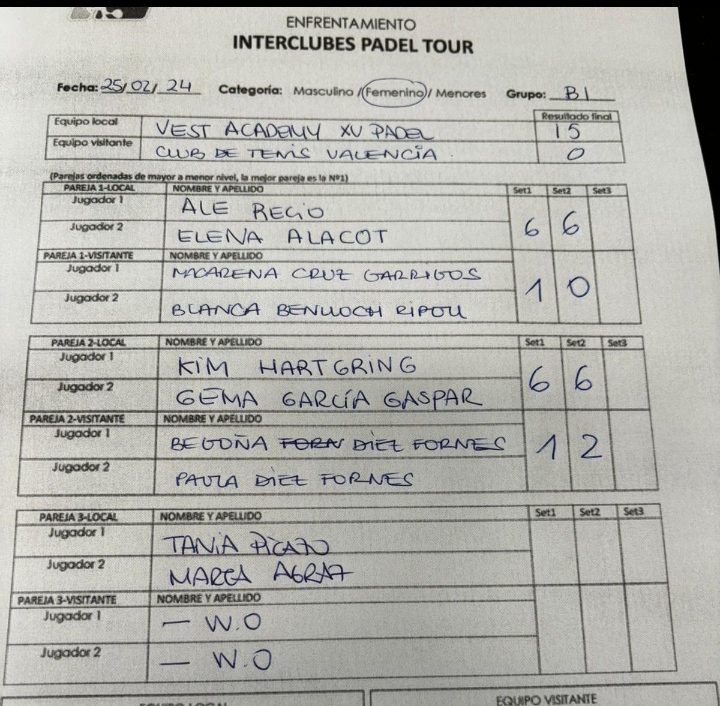 ENFRENTAMIENTO
INTERCLUBES PADEL TOUR
Fecha: 25/02/24 Categoría: Masculino /Femenino/ Menores Grupo: B1
Resultado final
Equipo local VEST ACADEMY XV PADEL 15
Equipo visitante CLUB DE TENIS VALENCIA 0
(Parejas ordenadas de mayor a menor nivel, la mejor pareja es la Nº1)
PAREJA 1-LOCAL NOMBRE Y APELLIDO Set1 Set2 Set3
Jugador 1 ALE RECIO
6 6
Jugador 2 ELENA ALACOT
PAREJA 1-VISITANTE NOMBRE Y APELLIDO
Jugador 1 MACARENA CRUZ GARRIGOS
1 0
Jugador 2 BLANCA BENLLOCH RIPOLL
PAREJA 2-LOCAL NOMBRE Y APELLIDO Set1 Set2 Set3
Jugador 1 KIM HARTGRING
6 6
Jugador 2 GEMA GARCÍA GASPAR
PAREJA 2-VISITANTE NOMBRE Y APELLIDO
Jugador 1 BEGOÑA DIEZ FORNES
1 2
Jugador 2 PAULA DIEZ FORNES
PAREJA 3-LOCAL NOMBRE Y APELLIDO Set1 Set2 Set3
Jugador 1 TANIA PICAZO
Jugador 2 MARTA
PAREJA 3-VISITANTE NOMBRE Y APELLIDO
Jugador 1 — W.O
Jugador 2 — W.O
EQUIPO LOCAL EQUIPO VISITANTE